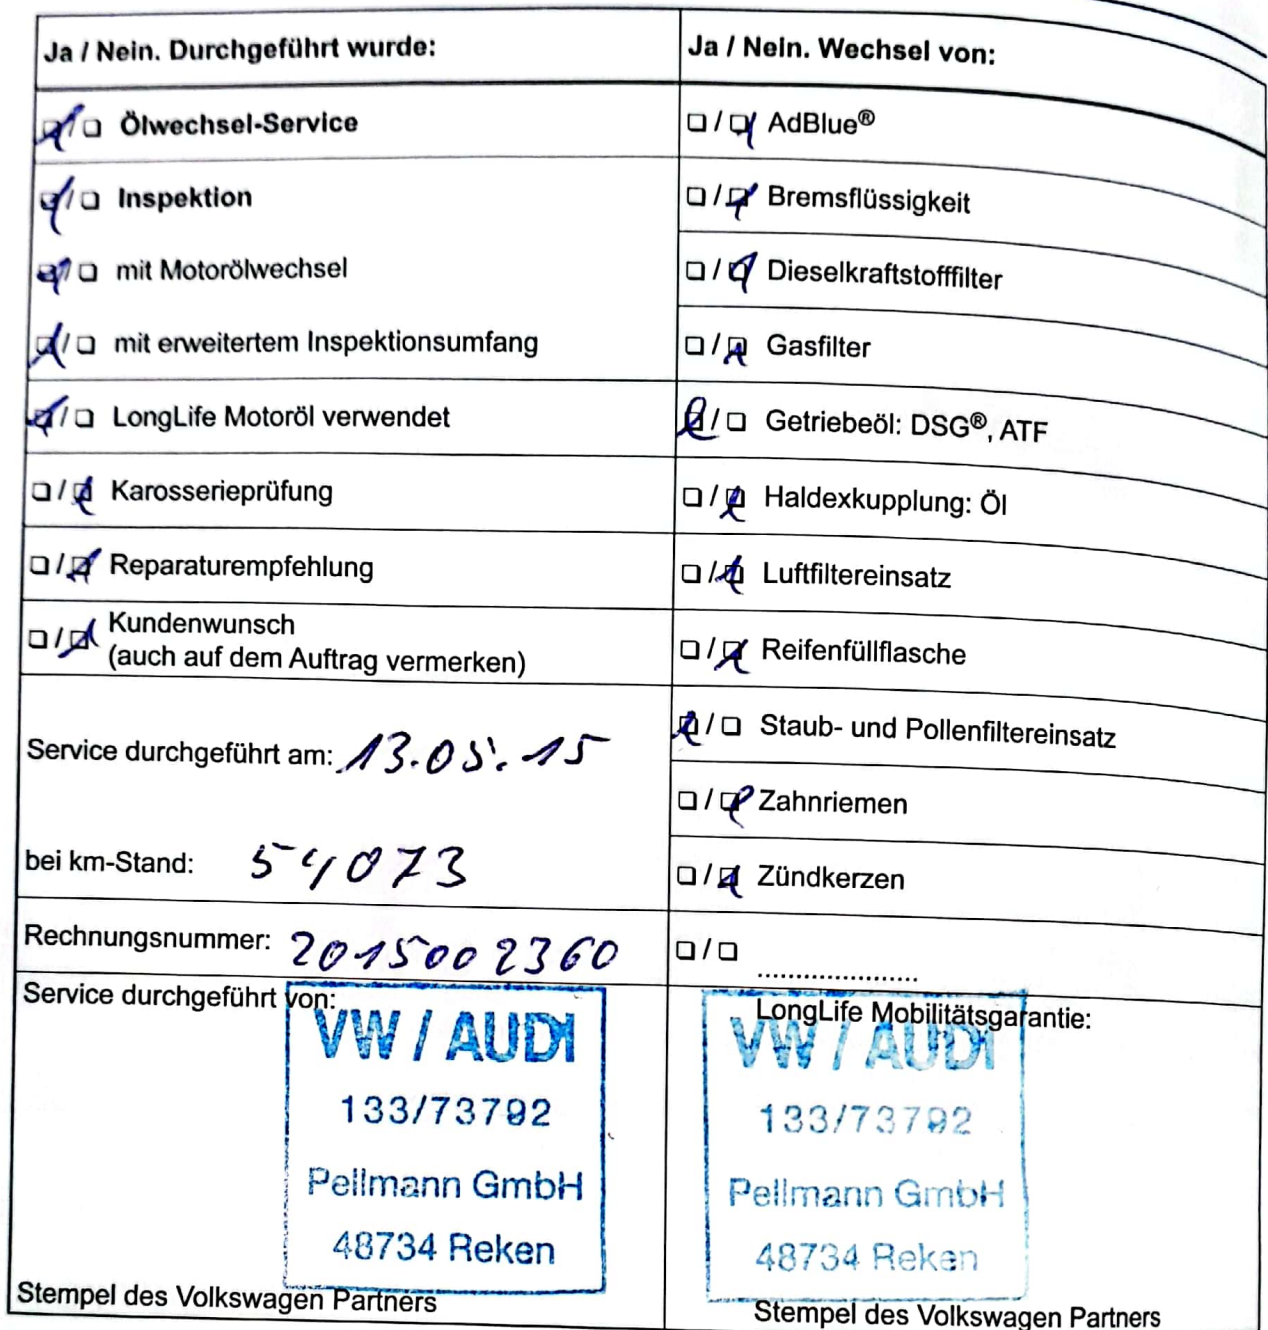 Ja / Nein. Durchgeführt wurde:
☒/☐ Ölwechsel-Service
☒/☐ Inspektion
☒/☐ mit Motorölwechsel
☒/☐ mit erweitertem Inspektionsumfang
☒/☐ LongLife Motoröl verwendet
☐/☒ Karosserieprüfung
☐/☒ Reparaturempfehlung
☐/☒ Kundenwunsch
(auch auf dem Auftrag vermerken)
Service durchgeführt am: 13.05.15
bei km-Stand: 54073
Rechnungsnummer: 2015002360
Service durchgeführt von:
VW / AUDI
133/73792
Pellmann GmbH
48734 Reken
Stempel des Volkswagen Partners
Ja / Nein. Wechsel von:
☐/☒ AdBlue®
☐/☒ Bremsflüssigkeit
☐/☒ Dieselkraftstofffilter
☐/☒ Gasfilter
☒/☐ Getriebeöl: DSG®, ATF
☐/☒ Haldexkupplung: Öl
☐/☒ Luftfiltereinsatz
☐/☒ Reifenfüllflasche
☒/☐ Staub- und Pollenfiltereinsatz
☐/☒ Zahnriemen
☐/☒ Zündkerzen
☐/☐ .....................
LongLife Mobilitätsgarantie:
VW / AUDI
133/73792
Pellmann GmbH
48734 Reken
Stempel des Volkswagen Partners